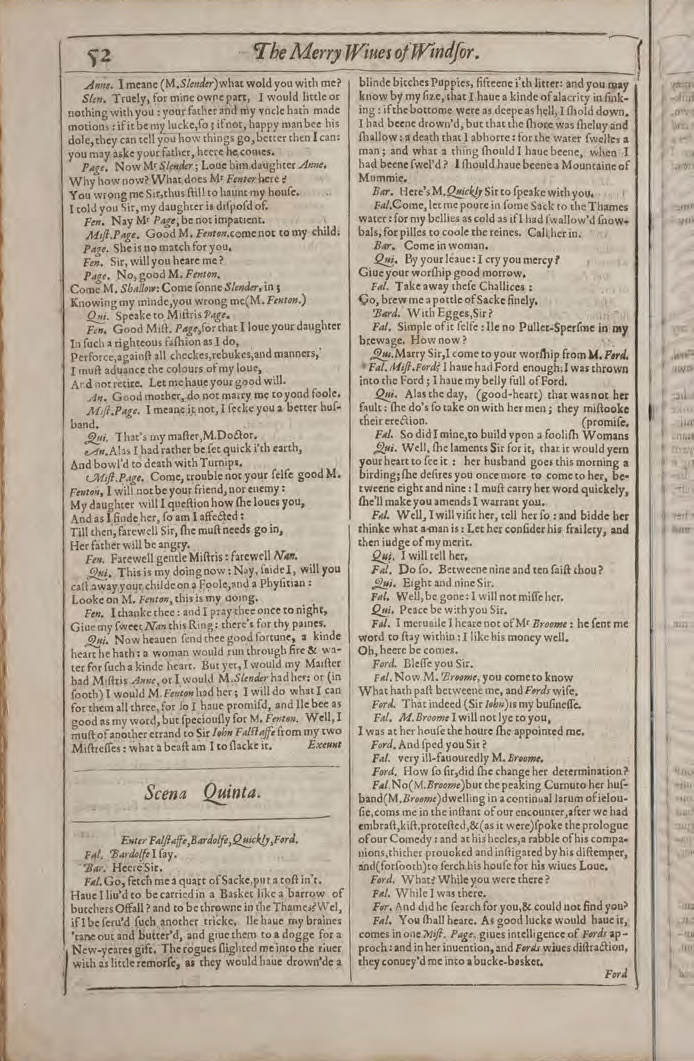 52 The Merry Wiues of Windſor.
Anne. I meane (M. Slender) what wold you with me?
Slen. Truely, for mine owne part, I would little or
nothing with you: your father and my vncle hath made
motions: if it be my lucke, ſo; if not, happy man bee his
dole, they can tell you how things go, better then I can:
you may aske your father, heere he comes.
Page. Now Mr Slender; Loue him daughter Anne.
Why how now? What does Mr Fenter here?
You wrong me Sir, thus ſtill to haunt my houſe.
I told you Sir, my daughter is diſpoſd of.
Fen. Nay Mr Page, be not impatient.
Miſt. Page. Good M. Fenton, come not to my child.
Page. She is no match for you.
Fen. Sir, will you heare me?
Page. No, good M. Fenton.
Come M. Shallow: Come ſonne Slender, in;
Knowing my minde, you wrong me (M. Fenton.)
Qui. Speake to Miſtris Page.
Fen. Good Miſt. Page, for that I loue your daughter
In ſuch a righteous faſhion as I do,
Perforce, againſt all checkes, rebukes, and manners,
I muſt aduance the colours of my loue,
And not retire. Let me haue your good will.
An. Good mother, do not marry me to yond foole.
Miſt. Page. I meane it not, I ſeeke you a better huſ-
band.
Qui. That's my maſter, M. Doctor.
An. Alas I had rather be ſet quick i'th earth,
And bowl'd to death with Turnips.
Miſt. Page. Come, trouble not your ſelfe good M.
Fenton, I will not be your friend, nor enemy:
My daughter will I queſtion how ſhe loues you,
And as I finde her, ſo am I affected:
Till then, farewell Sir, ſhe muſt needs go in,
Her father will be angry.
Fen. Farewell gentle Miſtris: farewell Nan.
Qui. This is my doing now: Nay, ſaide I, will you
caſt away your childe on a Foole, and a Phyſitian:
Looke on M. Fenton, this is my doing.
Fen. I thanke thee: and I pray thee once to night,
Giue my ſweet Nan this Ring: there's for thy paines.
Qui. Now heauen ſend thee good fortune, a kinde
heart he hath: a woman would run through fire & wa-
ter for ſuch a kinde heart. But yet, I would my Maiſter
had Miſtris Anne, or I would M. Slender had her: or (in
ſooth) I would M. Fenton had her; I will do what I can
for them all three, for ſo I haue promiſd, and Ile bee as
good as my word, but ſpeciouſly for M. Fenton. Well, I
muſt of another errand to Sir Iohn Falſtaffe from my two
Miſtreſſes: what a beaſt am I to ſlacke it. Exeunt
Scena Quinta.
Enter Falſtaffe, Bardolfe, Quickly, Ford.
Fal. Bardolfe I ſay.
Bar. Heere Sir.
Fal. Go, fetch me a quart of Sacke, put a toſt in't.
Haue I liu'd to be carried in a Basket like a barrow of
butchers Offall? and to be throwne in the Thames? Wel,
if I be ſeru'd ſuch another tricke, Ile haue my braines
'tane out and butter'd, and giue them to a dogge for a
New-yeares gift. The rogues ſlighted me into the riuer
with as little remorſe, as they would haue drown'de a
blinde bitches Puppies, fifteene i'th litter: and you may
know by my ſize, that I haue a kinde of alacrity in ſink-
ing: if the bottome were as deepe as hell, I ſhold down.
I had beene drown'd, but that the ſhore was ſheluy and
ſhallow: a death that I abhorre: for the water ſwelles a
man; and what a thing ſhould I haue beene, when I
had beene ſwel'd? I ſhould haue beene a Mountaine of
Mummie.
Bar. Here's M. Quickly Sir to ſpeake with you.
Fal. Come, let me poure in ſome Sack to the Thames
water: for my bellies as cold as if I had ſwallow'd ſnow-
bals, for pilles to coole the reines. Call her in.
Bar. Come in woman.
Qui. By your leaue: I cry you mercy?
Giue your worſhip good morrow.
Fal. Take away theſe Challices:
Go, brew me a pottle of Sacke finely.
Bard. With Egges, Sir?
Fal. Simple of it ſelfe: Ile no Pullet-Sperſme in my
brewage. How now?
Qui. Marry Sir, I come to your worſhip from M. Ford.
Fal. Miſt. Ford? I haue had Ford enough: I was thrown
into the Ford; I haue my belly full of Ford.
Qui. Alas the day, (good-heart) that was not her
fault: ſhe do's ſo take on with her men; they miſtooke
their erection. (promiſe.
Fal. So did I mine, to build vpon a fooliſh Womans
Qui. Well, ſhe laments Sir for it, that it would yern
your heart to ſee it: her husband goes this morning a
birding; ſhe deſires you once more to come to her, be-
tweene eight and nine: I muſt carry her word quickely,
ſhe'll make you amends I warrant you.
Fal. Well, I will viſit her, tell her ſo: and bidde her
thinke what a man is: Let her conſider his frailety, and
then iudge of my merit.
Qui. I will tell her.
Fal. Do ſo. Betweene nine and ten ſaiſt thou?
Qui. Eight and nine Sir.
Fal. Well, be gone: I will not miſſe her.
Qui. Peace be with you Sir.
Fal. I meruaile I heare not of Mr Broome: he ſent me
word to ſtay within: I like his money well.
Oh, heere be comes.
Ford. Bleſſe you Sir.
Fal. Now M. Broome, you come to know
What hath paſt betweene me, and Fords wife.
Ford. That indeed (Sir Iohn) is my buſineſſe.
Fal. M. Broome I will not lye to you,
I was at her houſe the houre ſhe appointed me.
Ford. And ſped you Sir?
Fal. very ill-fauouredly M. Broome.
Ford. How ſo ſir, did ſhe change her determination?
Fal. No (M. Broome) but the peaking Curnuto her huſ-
band (M. Broome) dwelling in a continual larum of ielou-
ſie, coms me in the inſtant of our encounter, after we had
embraſt, kiſt, proteſted, & (as it were) ſpoke the prologue
of our Comedy: and at his heeles, a rabble of his compa-
nions, thither prouoked and inſtigated by his diſtemper,
and (forſooth) to ſerch his houſe for his wiues Loue.
Ford. What? While you were there?
Fal. While I was there.
For. And did he ſearch for you, & could not find you?
Fal. You ſhall heare. As good lucke would haue it,
comes in one Miſt. Page, giues intelligence of Fords ap-
proch: and in her inuention, and Fords wiues diſtraction,
they conuey'd me into a bucke-basket.
Ford